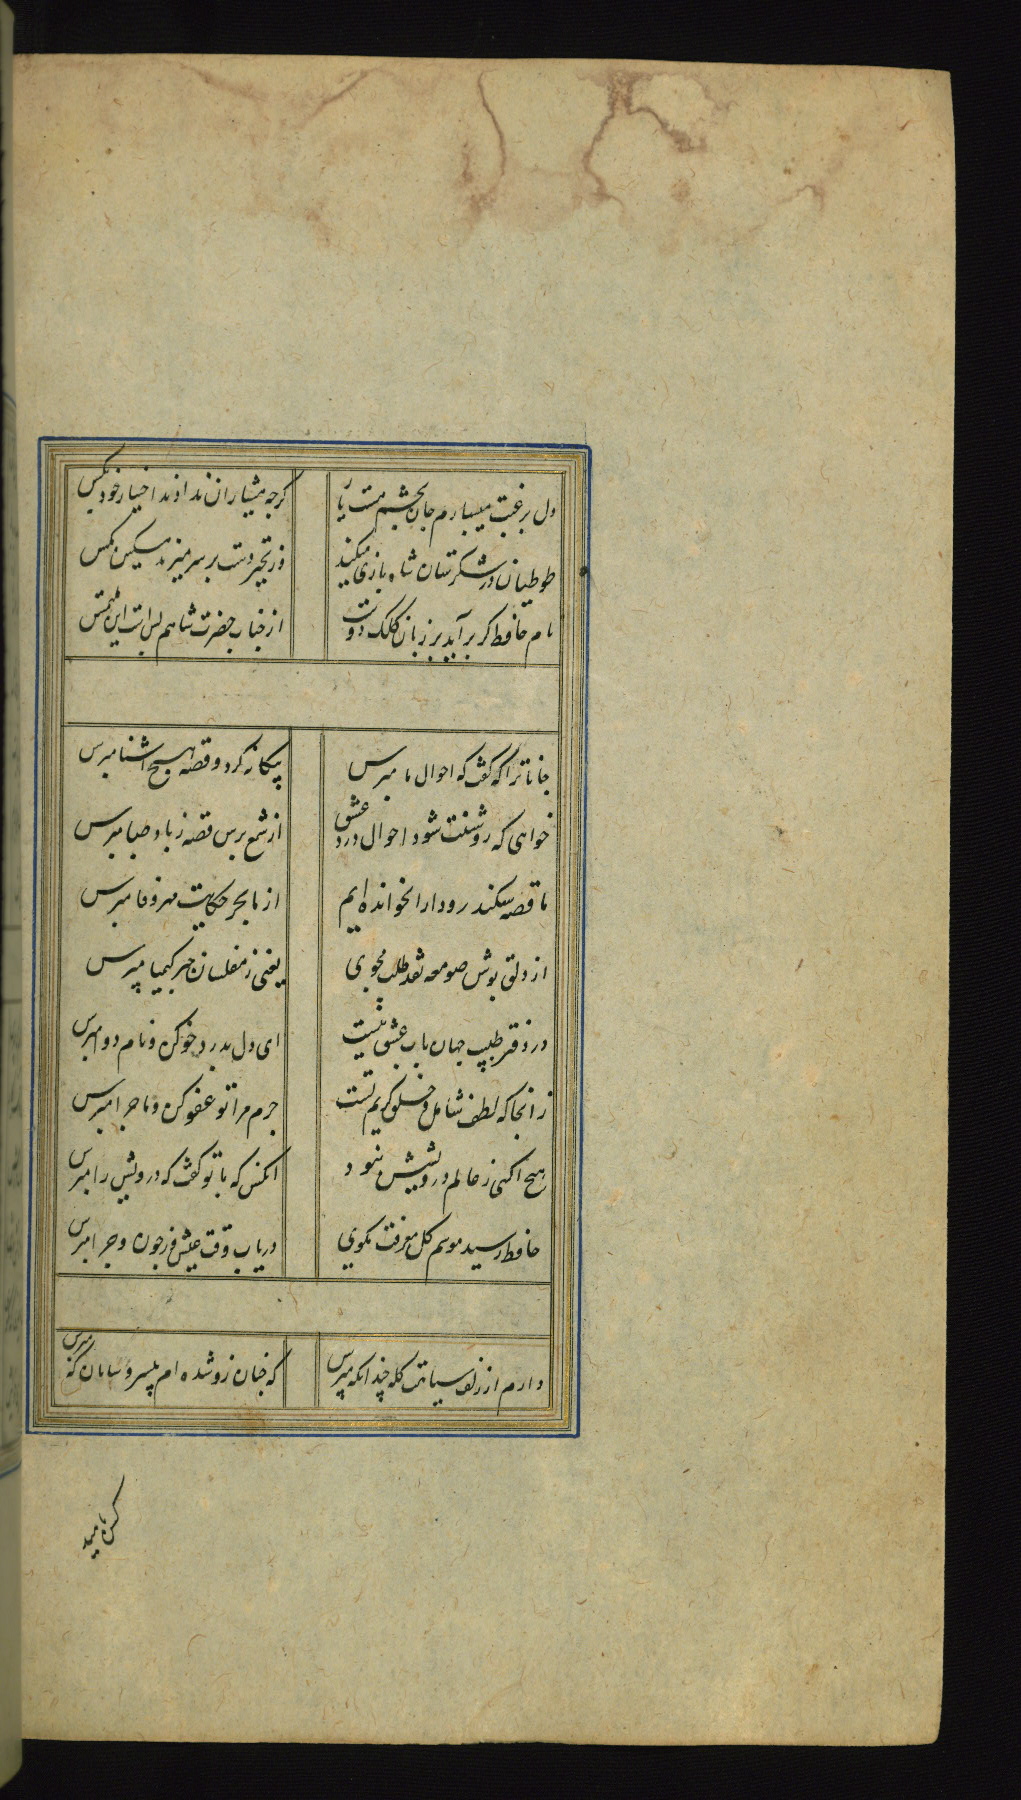 دل برغبت میسپارم جان بچشم مست یار
کرچه هشیاران ندادند اختیار خود بکس
طوطیان در شکرستان شاه بازی میکنند
وز تحیر دست بر سر میزند مسکین مکس
نام حافظ کر برآید بر زبان کلک دوست
از جناب حضرت شاهم بس است این ملتمس
جانا ترا که کفت که احوال ما مپرس
بیکانه کرد و قصه هیچ آشنا مپرس
خواهی که روشنت شود احوال درد عشق
از شمع پرس قصه ز باد صبا مپرس
ما قصه سکندر و دارا نخوانده ایم
از ما بجز حکایت مهر و وفا مپرس
از دلق پوش صومعه نقد طلب مجوی
یعنی ز مفلسان خبر کیمیا مپرس
در دفتر طبیب جهان باب عشق نیست
ای دل بدرد خو کن و نام دوا مپرس
زانجا که لطف شامل و خلق کریم تست
جرم مرا تو عفو کن و ماجرا مپرس
هیچ آکهی ز عالم درویشیش نبود
آنکس که با تو کفت که درویش را مپرس
حافظ رسید موسم کل معرفت مکوی
دریاب وقت عیش و ز چون و چرا مپرس
دارم از زلف سیاهت کله چندانکه مپرس
که چنان زو شده ام بیسروسامان که مپرس
کس بامید